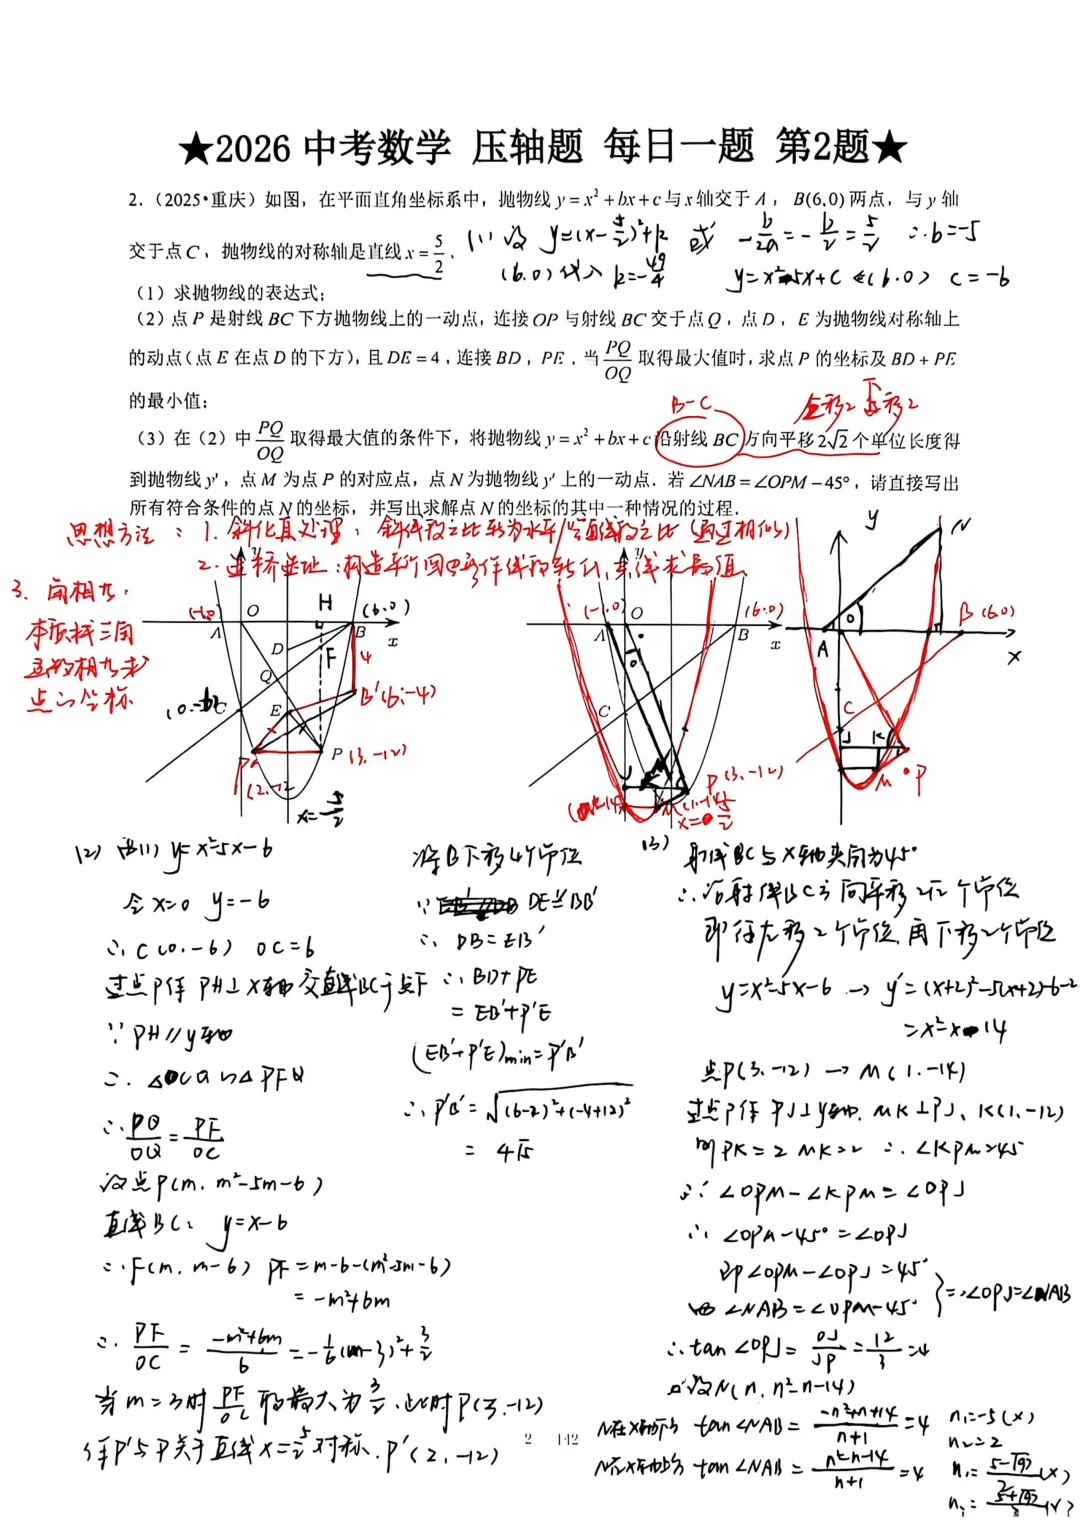 ★2026 中考数学 压轴题 每日一题 第2题★
2.（2025•重庆）如图，在平面直角坐标系中，抛物线 y=x²+bx+c 与 x 轴交于 A，B(6,0) 两点，与 y 轴
交于点 C，抛物线的对称轴是直线 x=5/2．
(1) 设 y=(x-5/2)²+k 或 -b/2a=-b/2=5/2 ∴b=-5
(6.0)代入 k=-49/4 y=x²-5x+c ←(6.0) c=-6
（1）求抛物线的表达式；
（2）点 P 是射线 BC 下方抛物线上的一动点，连接 OP 与射线 BC 交于点 Q，点 D，E 为抛物线对称轴上
的动点（点 E 在点 D 的下方），且 DE=4，连接 BD，PE．当 PQ/OQ 取得最大值时，求点 P 的坐标及 BD+PE
的最小值；
B-C 左移2 下移2
（3）在（2）中 PQ/OQ 取得最大值的条件下，将抛物线 y=x²+bx+c 沿射线 BC 方向平移 2√2 个单位长度得
到抛物线 y′，点 M 为点 P 的对应点，点 N 为抛物线 y′ 上的一动点．若 ∠NAB=∠OPM-45°，请直接写出
所有符合条件的点 N 的坐标，并写出求解点 N 的坐标的其中一种情况的过程．
思想方法：1. 斜化直处理：斜线段之比转为水平/竖直线段之比（通过相似）
2. 造桥选址：构造平行四边形作线段转化，共线求最值
3. 角相等：
本质找三角
函数相等求
点的坐标
(-1,0) O H (6.0)
A B x
D F 4
Q
(0.-6) C B'(6.-4)
E
P' P (3.-12)
(2,-12
x=5/2
(-1.0) O (6.0)
A B x
C
J P(3.-12)
M(1.-14)
x=5/2
y N
A B(6.0)
x
C
J K
M P
(2) 由(1) y=x²-5x-6
令x=0 y=-6
∴C(0.-6) OC=6
过点P作PH⊥X轴交直线BC于点F
∵PH//y轴
∴△OCQ∽△PFQ
∴PQ/OQ=PF/OC
设点P(m, m²-5m-6)
直线BC: y=x-6
∴F(m, m-6) PF=m-6-(m²-5m-6)
=-m²+6m
∴PF/OC=(-m²+6m)/6=-1/6(m-3)²+3/2
当m=3时 PF/OC 取最大为3/2.此时P(3.-12)
作P'与P关于直线x=5/2对称.P'(2,-12)
将B下移4个单位
∵DE∥BB'
∴DB=EB'
∴BD+PE
=EB'+P'E
(EB'+P'E)min=P'B'
∴P'B'=√((6-2)²+(-4+12)²
=4√5
(3) 射线BC与X轴夹角为45°
∴沿射线BC方向平移2√2个单位
即往左移2个单位,再下移2个单位
y=x²-5x-6 → y'=(x+2)²-5(x+2)-6-2
=x²-x-14
点P(3.-12) → M(1.-14)
过点P作PJ⊥y轴. MK⊥PJ、K(1,-12)
则PK=2 MK=2 ∴∠KPM=45
∵∠OPM-∠KPM=∠OPJ
∴∠OPM-45°=∠OPJ
即∠OPM-∠OPJ=45°
∠NAB=∠OPM-45° } ⇒∠OPJ=∠NAB
∴tan∠OPJ=OJ/JP=12/3=4
设N(n, n²-n-14)
N在X轴下方 tan∠NAB=(-n²+n+14)/(n+1)=4 n₁=-5(x)
n₂=2
N在X轴上方 tan∠NAB=(n²-n-14)/(n+1)=4
2 142